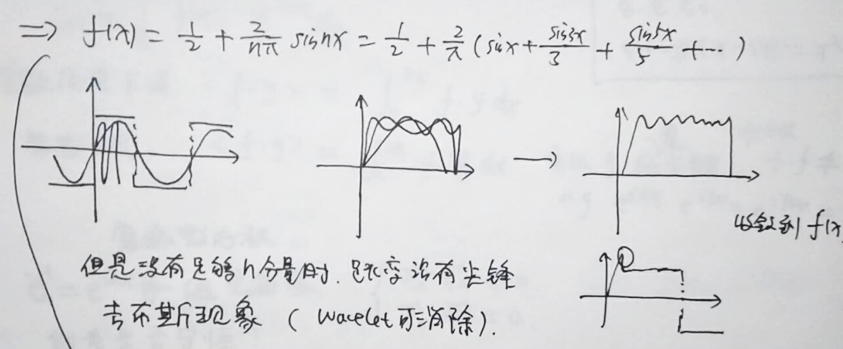 ⇒ f(x) = 1/2 + 2/nπ sinnx = 1/2 + 2/π (sinx + sin3x/3 + sin5x/5 + ⋯)
收敛到 f(x
但是没有足够n分量时, 跃变没有尖锋
吉布斯现象 ( wavelet可消除).